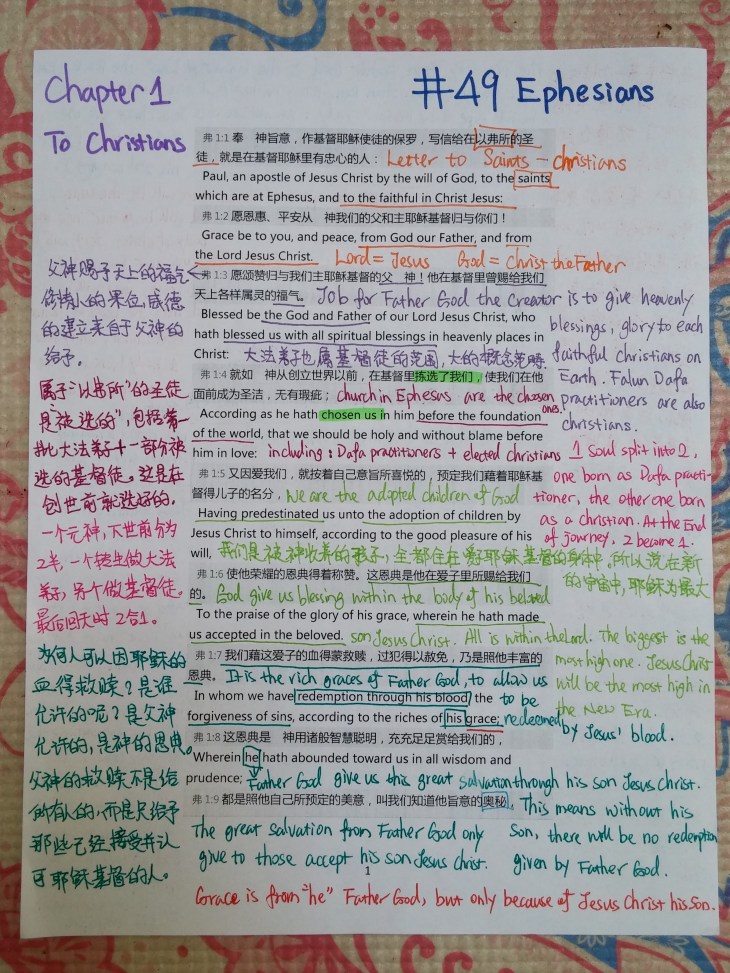 Chapter 1
#49 Ephesians
To Christians
弗 1:1 奉 神旨意，作基督耶稣使徒的保罗，写信给在以弗所的圣
徒，就是在基督耶稣里有忠心的人： Letter to Saints - christians
Paul, an apostle of Jesus Christ by the will of God, to the saints
which are at Ephesus, and to the faithful in Christ Jesus:
弗 1:2 愿恩惠、平安从 神我们的父和主耶稣基督归与你们！
Grace be to you, and peace, from God our Father, and from
the Lord Jesus Christ. Lord = Jesus God = Christ the Father
弗 1:3 愿颂赞归与我们主耶稣基督的父 神！他在基督里曾赐给我们
天上各样属灵的福气。 Job for Father God the Creator is to give heavenly
Blessed be the God and Father of our Lord Jesus Christ, who
blessings, glory to each
hath blessed us with all spiritual blessings in heavenly places in
faithful christians on
Christ: 大法弟子也属基督徒的范围，大的概念范畴.
Earth. Falun Dafa
practitioners are also
christians.
弗 1:4 就如 神从创立世界以前，在基督里拣选了我们，使我们在他
面前成为圣洁，无有瑕疵； church in Ephesus are the chosen
ones.
According as he hath chosen us in him before the foundation
of the world, that we should be holy and without blame before
him in love: including: Dafa practitioners + elected christians
1 Soul split into 2,
one born as Dafa practi-
tioner, the other one born
as a christian. At the End
of journey. 2 become 1.
弗 1:5 又因爱我们，就按着自己意旨所喜悦的，预定我们藉着耶稣基
督得儿子的名分， We are the adopted children of God
Having predestinated us unto the adoption of children by
Jesus Christ to himself, according to the good pleasure of his
will, 我们是被神收养的孩子，全都住在爱子耶稣基督的身体中。所以说在新
的宇宙中，耶稣为最大
弗 1:6 使他荣耀的恩典得着称赞。这恩典是他在爱子里所赐给我们
的。 God give us blessing within the body of his beloved
To the praise of the glory of his grace, wherein he hath made
us accepted in the beloved. son Jesus Christ. All is within the Lord. The biggest is the
most high one. Jesus Christ
will be the most high in
the New Era.
弗 1:7 我们藉这爱子的血得蒙救赎，过犯得以赦免，乃是照他丰富的
恩典。 It is the rich graces of Father God, to allow us
In whom we have redemption through his blood, the to be
forgiveness of sins, according to the riches of his grace; redeemed
by Jesus' blood.
弗 1:8 这恩典是 神用诸般智慧聪明，充充足足赏给我们的，
Wherein he hath abounded toward us in all wisdom and
prudence; Father God give us this great salvation through his son Jesus Christ.
弗 1:9 都是照他自己所预定的美意，叫我们知道他旨意的奥秘，
This means without his
son, there will be no redemption
given by Father God.
The great salvation from Father God only
give to those accept his son Jesus christ.
1
Grace is from "he" Father God, but only because of Jesus Christ his Son.
父神赐予天上的福气
修持人的果位，威德
的建立来自于父神的
给予.
属于"以弗所"的圣徒
是"被选的"，包括第一
批大法弟子十一部分被
选的基督徒。这是在
创世前就选好的。
一个元神，下世前分为
2半，一个转生做大法
弟子，另个做基督徒.
最后回天时2合1。
为何人可以因耶稣的
血得救赎？是谁
允许的呢？是父神
允许的，是神的恩典。
父神的救赎不是给
所有人的，而是只给予
那些已经接受并认
可耶稣基督的人。